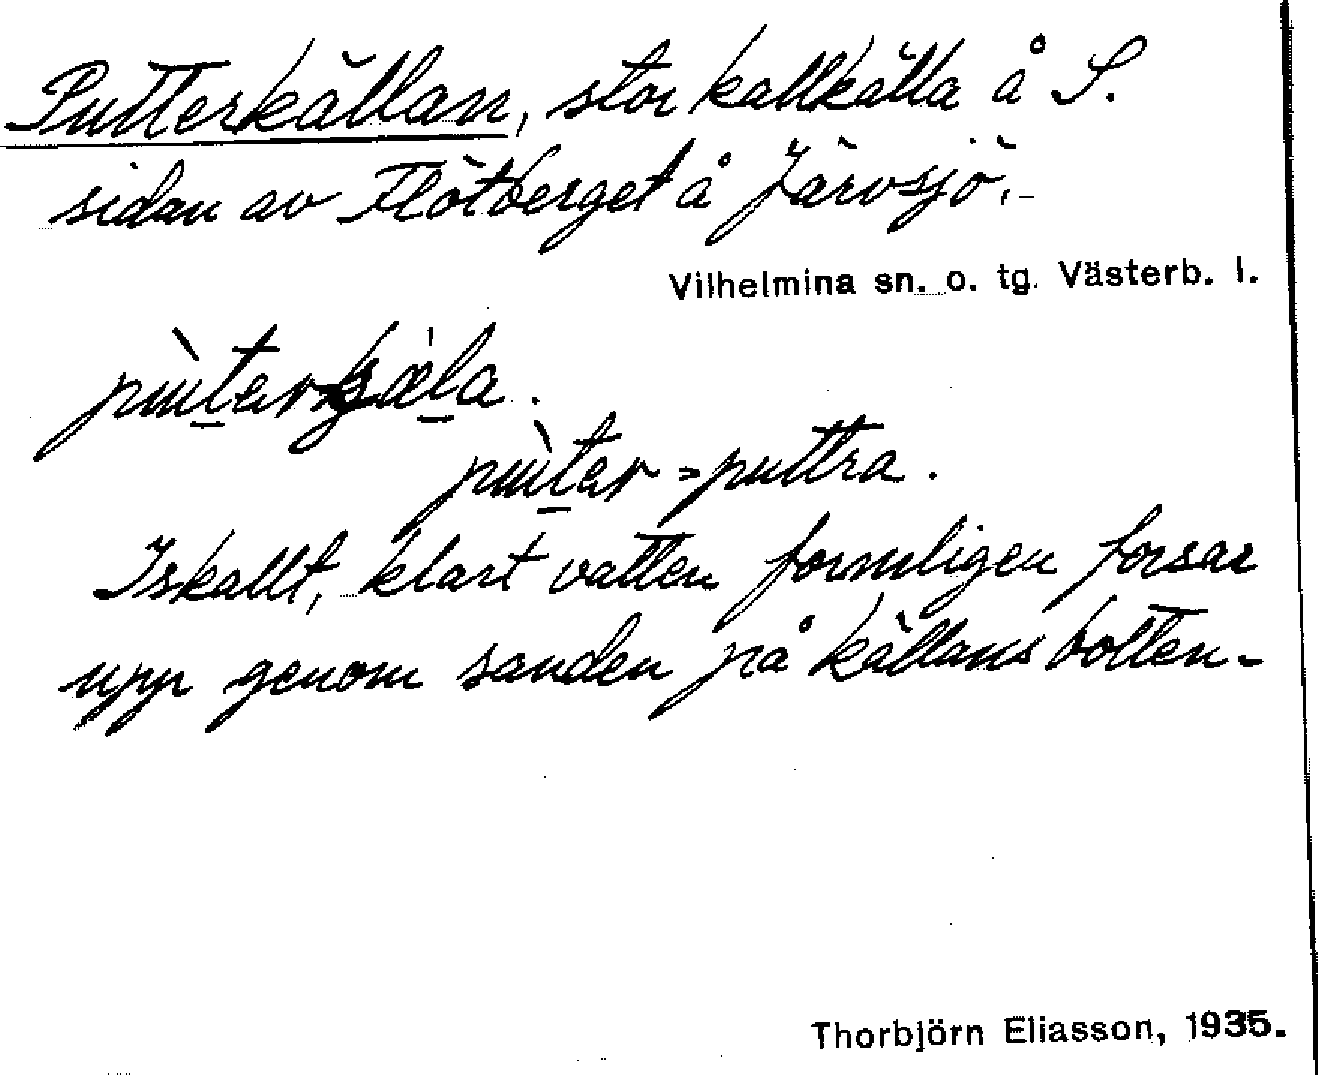 Putterkällan, stor kallkälla å S.
sidan av Flötberget å Järvsjö.-
Vilhelmina sn. o. tg. Västerb. l.
pùtarkæ̍la.
pùtar = puttra.
Iskallt, klart vatten formligen forsar
upp genom sanden på källans botten.
Thorbjörn Eliasson, 1935.